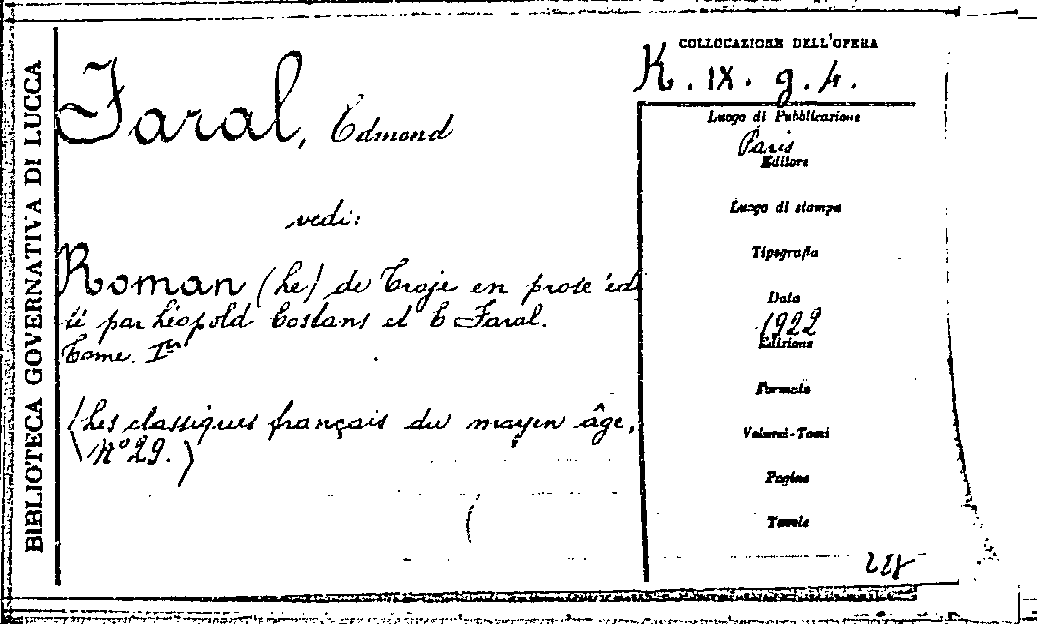 BIBLIOTECA GOVERNATIVA DI LUCCA
Faral, Edmond
vedi:
Roman (Le) de Troje en prose éd
té par Léopold Costans et E Faral.
Tome Ier
(Les classiques français du moyen âge,
N° 29.)
COLLOCAZIONE DELL'OPERA
K. IX. g. 4.
Luogo di Pubblicazione
Paris
Editore
Luogo di stampa
Tipografia
Data
1922
Edizione
Formato
Volumi-Tomi
Pagine
Tavole